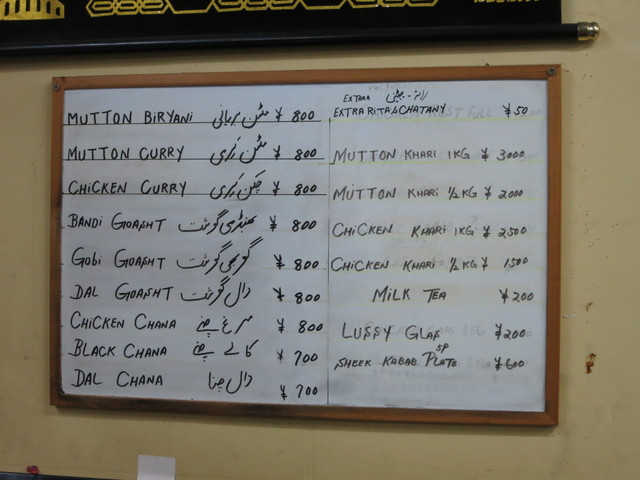 MUTTON BIRYANI مٹن بریانی ¥ 800
MUTTON CURRY مٹن کری ¥ 800
CHICKEN CURRY چکن کری ¥ 800
BANDI GOASHT بھنڈی گوشت ¥ 800
GOBI GOASHT گوبھی گوشت ¥ 800
DAL GOASHT دال گوشت ¥ 800
CHICKEN CHANA مرغ چنے ¥ 800
BLACK CHANA کالے چنے ¥ 700
DAL CHANA دال چنا ¥ 700
EXTRA
EXTRA RITA & CHATANY ¥ 50
MUTTON KHARI 1KG ¥ 3000
MUTTON KHARI 1/2 KG ¥ 2000
CHICKEN KHARI 1KG ¥ 2500
CHICKEN KHARI 1/2 KG ¥ 1500
MILK TEA ¥ 200
LUSSY GLAS ¥ 200
SHEEK KABAB PLATE 5P ¥ 600